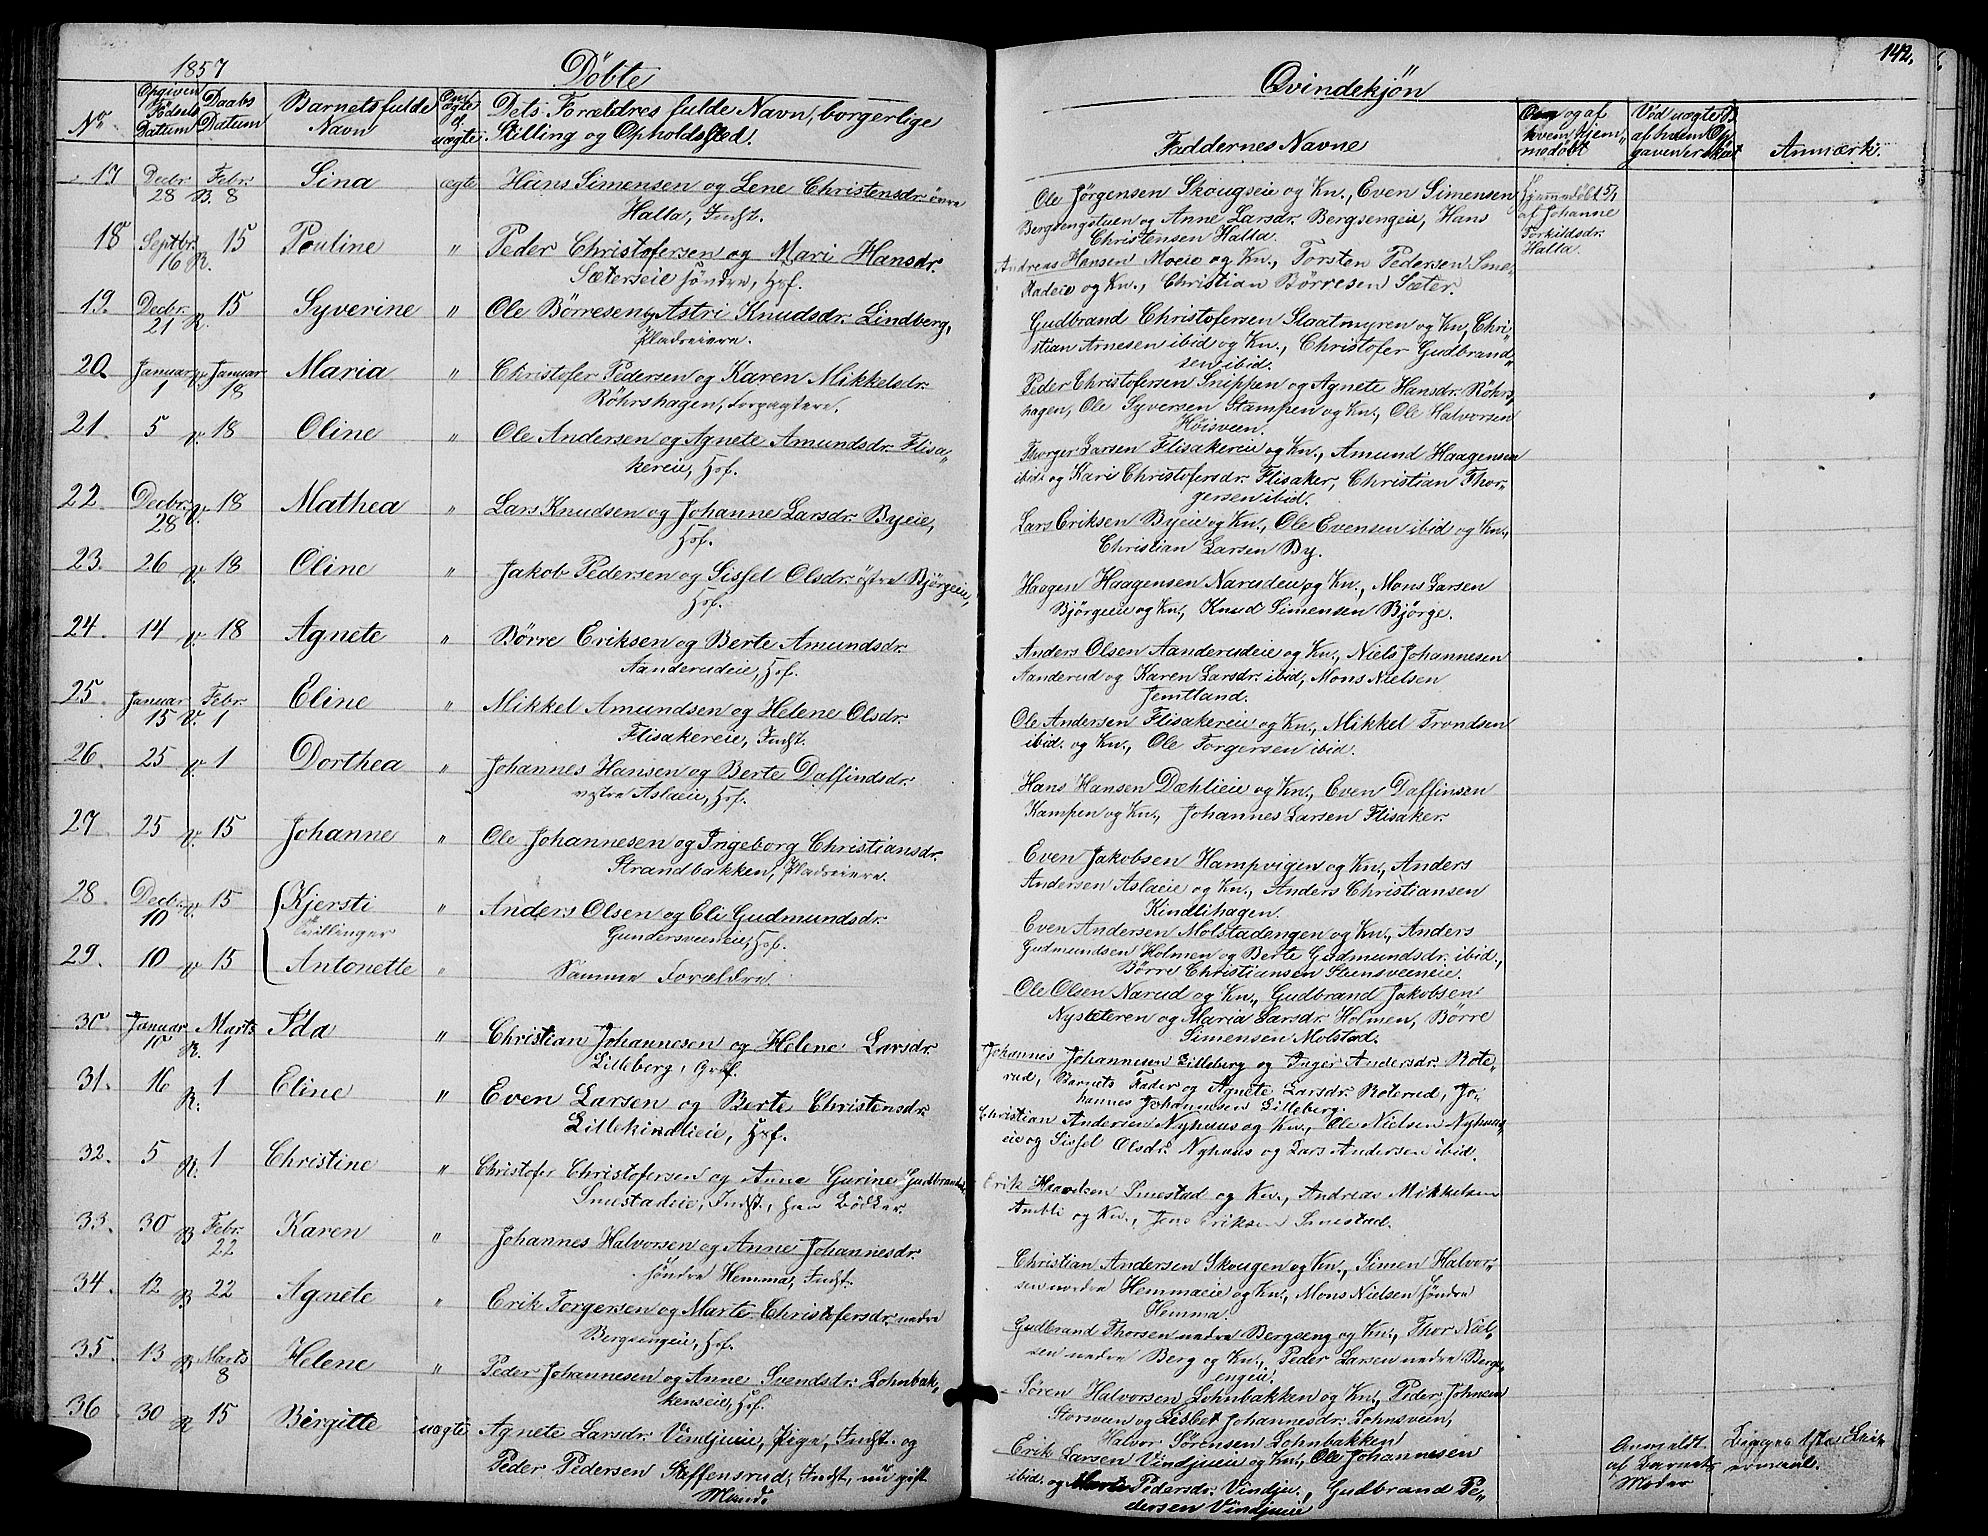 1857
Döbte
Qvindekjøn
142.
No.
Opgiven Födsels Datum
Daabs Datum
Barnets fulde Navn
ægte el. uægte
Dets Forældres fulde Navn, borgerlige Stilling og Opholdssted.
Faddernes Navne
Om og af hvem hjemmedöbt
Ved uægte B. af hvem Opgaven er skeet
Anmærk.
17 Decbr. 28 R. Febr. 8 Sina ægte Hans Simensen og Lene Christensdr. övre
Halla, Indst.
Ole Jörgensen Skougseie og Kn., Even Simensen
Bergsengstuen og Anne Larsdr. Bergsengeie, Hans
Christensen Halla.
Hjemmedöbt 5/1
af Johanne
Torkildsdr.
Halla.
18 Septbr. 16 R. 15 Pauline " Peder Christofersen og Mari Hansdr.
Sæterseie söndre, Hsf.
Andreas Hansen Moeie og Kn., Torsten Pedersen Sme-
stadeie og Kn., Christian Börresen Sæter.
19. Decbr. 21 R. 15 Syverine " Ole Börresen og Astri Knudsdr. Lindberg,
Pladseiere.
Gudbrand Christofersen Slaatmyren og Kn., Chri-
stian Arnesen ibid og Kn., Christofer Gudbrand-
sen ibid.
20. Januar 1 V. Januar 18 Maria " Christofer Pedersen og Karen Mikkelsdr.
Röhrshagen, Forpagtere.
Peder Christofersen Snippen og Agnete Hansdr. Röhrs-
hagen, Ole Syversen Stampen og Kn., Ole Halvorsen
Höisveen.
21. 5 V. 18 Oline " Ole Andersen og Agnete Amundsdr. Flisa-
kereie, Hsf.
Thorger Larsen Flisakereie og Kn., Amund Haagensen
ibid og Kari Christofersdr. Flisaker, Christian Thor-
gersen ibid.
22. Decbr. 28 V. 18 Mathea " Lars Knudsen og Johanne Larsdr. Byeie,
Hsf.
Lars Eriksen Byeie og Kn., Ole Evensen ibid og Kn.,
Christian Larsen By.
23. 26 V. 18 Oline " Jakob Pedersen og Sissel Olsdr. östre Bjørgeie,
Hsf.
Haagen Haagensen Narudeie og Kn., Mons Larsen
Bjørgeeie og Kn., Knud Simensen Bjørge.
24. 14 V. 18 Agnete " Börre Eriksen og Berte Amundsdr.
Aanderudeie, Hsf.
Anders Olsen Aanderudeie og Kn., Niels Johannesen
Aanderud og Karen Larsdr. ibid, Mons Nielsen
Jemtland.
25. Januar 15 V. Febr. 1 Eline " Mikkel Amundsen og Helene Olsdr.
Flisakereie, Indst.
Ole Andersen Flisakereie og Kn., Mikkel Trondsen
ibid. og Kn., Ole Torgersen ibid.
26. 25 V. 1 Dorthea " Johannes Hansen og Berte Daffindsdr.
vestre Aslaeie, Hsf.
Hans Hansen Dæhlieie og Kn., Even Daffinsen
Kampen og Kn., Johannes Larsen Flisaker.
27 25 V. 15 Johanne " Ole Johannesen og Ingeborg Christiansdr.
Strandbakken, Pladseiere.
Even Jakobsen Hampvigen og Kn., Anders
Andersen Aslaeie og Kn., Anders Christiansen
Kindlihagen.
28 Decbr. 10 V. 15 Kjersti " Anders Olsen og Eli Gudmundsdr.
Tvillinger
Gundersveeneie, Hsf.
Even Andersen Molstadengen og Kn., Anders
Gudmundsen Holmen og Berte Gudmundsdr. ibid.,
Börre Christiansen Steensveeneie.
29. 10 V 15 Antonette " Samme Forældre.
Ole Olsen Narud og Kn., Gudbrand Jakobsen
Nyseteren og Maria Larsdr. Holmen, Börre
Simensen Molstad.
30 Januar 10 R. Marts 1 Ida " Christian Johannesen og Helene Larsdr.
Lilleberg, Grf.
Johannes Johannesen Lilleberg og Inger Andersdr. Rote-
rud, Barnets Fader og Agnete Larsdr. Roterud, Jo-
hannes Johannesen Lilleberg.
31. 16 R. 1 Eline " Even Larsen og Berte Christensdr.
Lillekindlieie, Hsf.
Christian Andersen Nyhuus og Kn., Ole Nielsen Nyhuus-
eie og Sissel Olsdr. Nyhuus og Lars Andersen ibid.
32. 5 R. 1 Christine " Christofer Christofersen og Anne Gurine Gudbrandsd.
Smestadeie, Indst., han Bödker.
Erik Haavelsen Smestad og Kn., Andreas Mikkelsen
Ambli og Kn., Jens Eriksen Smestad.
33. 30 R Febr. 22 Karen " Johannes Halvorsen og Anne Johannesdr.
söndre Hemma, Indst.
Christian Andersen Skougen og Kn., Simen Halvor-
sen nordre Hemmaeie og Kn., Mons Nielsen söndre
Hemma.
34. 12 R 22 Agnete " Erik Torgersen og Marte Christofersdr. nedre
Bergsengeie, Hsf.
Gudbrand Thorsen nedre Bergseng og Kn., Thor Niel-
sen nedre Berg og Kn., Peder Larsen nedre Bergs-
engeie.
35. 13 R Marts 8 Helene " Peder Johannesen og Anne Svendsdr. Lohnbak-
kenseie, Hsf.
Sören Halvorsen Lohnbakken og Kn., Peder Johnsen
Storsveen og Lisbet Johannesdr. Lohnsveen,
Halvor Sörensen Lohnbakken
36. 30 R 15 Birgitte uægte Agnete Larsdr. Vindjueie, Pige, Indst. og
Peder Pedersen Steffensrud, Indst., nu gift
Mand.
Erik Larsen Vindjueie og Kn., Ole Johannesen
ibid. og Marte Pedersdr. Vindju., Gudbrand Pe-
dersen Vindjueie
Anmeldt
af Barnets
Moder